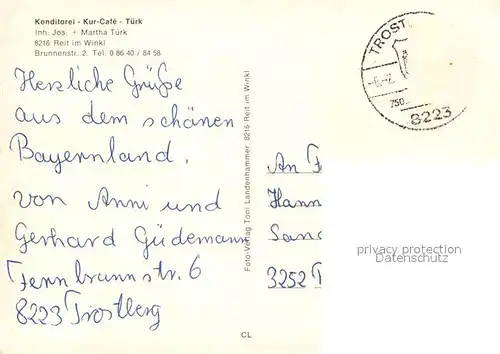 Konditorei - Kur-Café - Türk
Inh. Jos. + Martha Türk
8216 Reit im Winkl
Brunnenstr. 2. Tel. 0 86 40 / 84 58
Herzliche Grüße
aus dem schönen
Bayernland.
von Anni und
Gerhard Güdemann
8223 Trostberg
Foto-Verlag Toni Landenhammer, 8216 Reit im Winkl
CL
TROST
-6.-2.
750
8223
An F
Hann
Sand
3252
privacy protection
Datenschutz